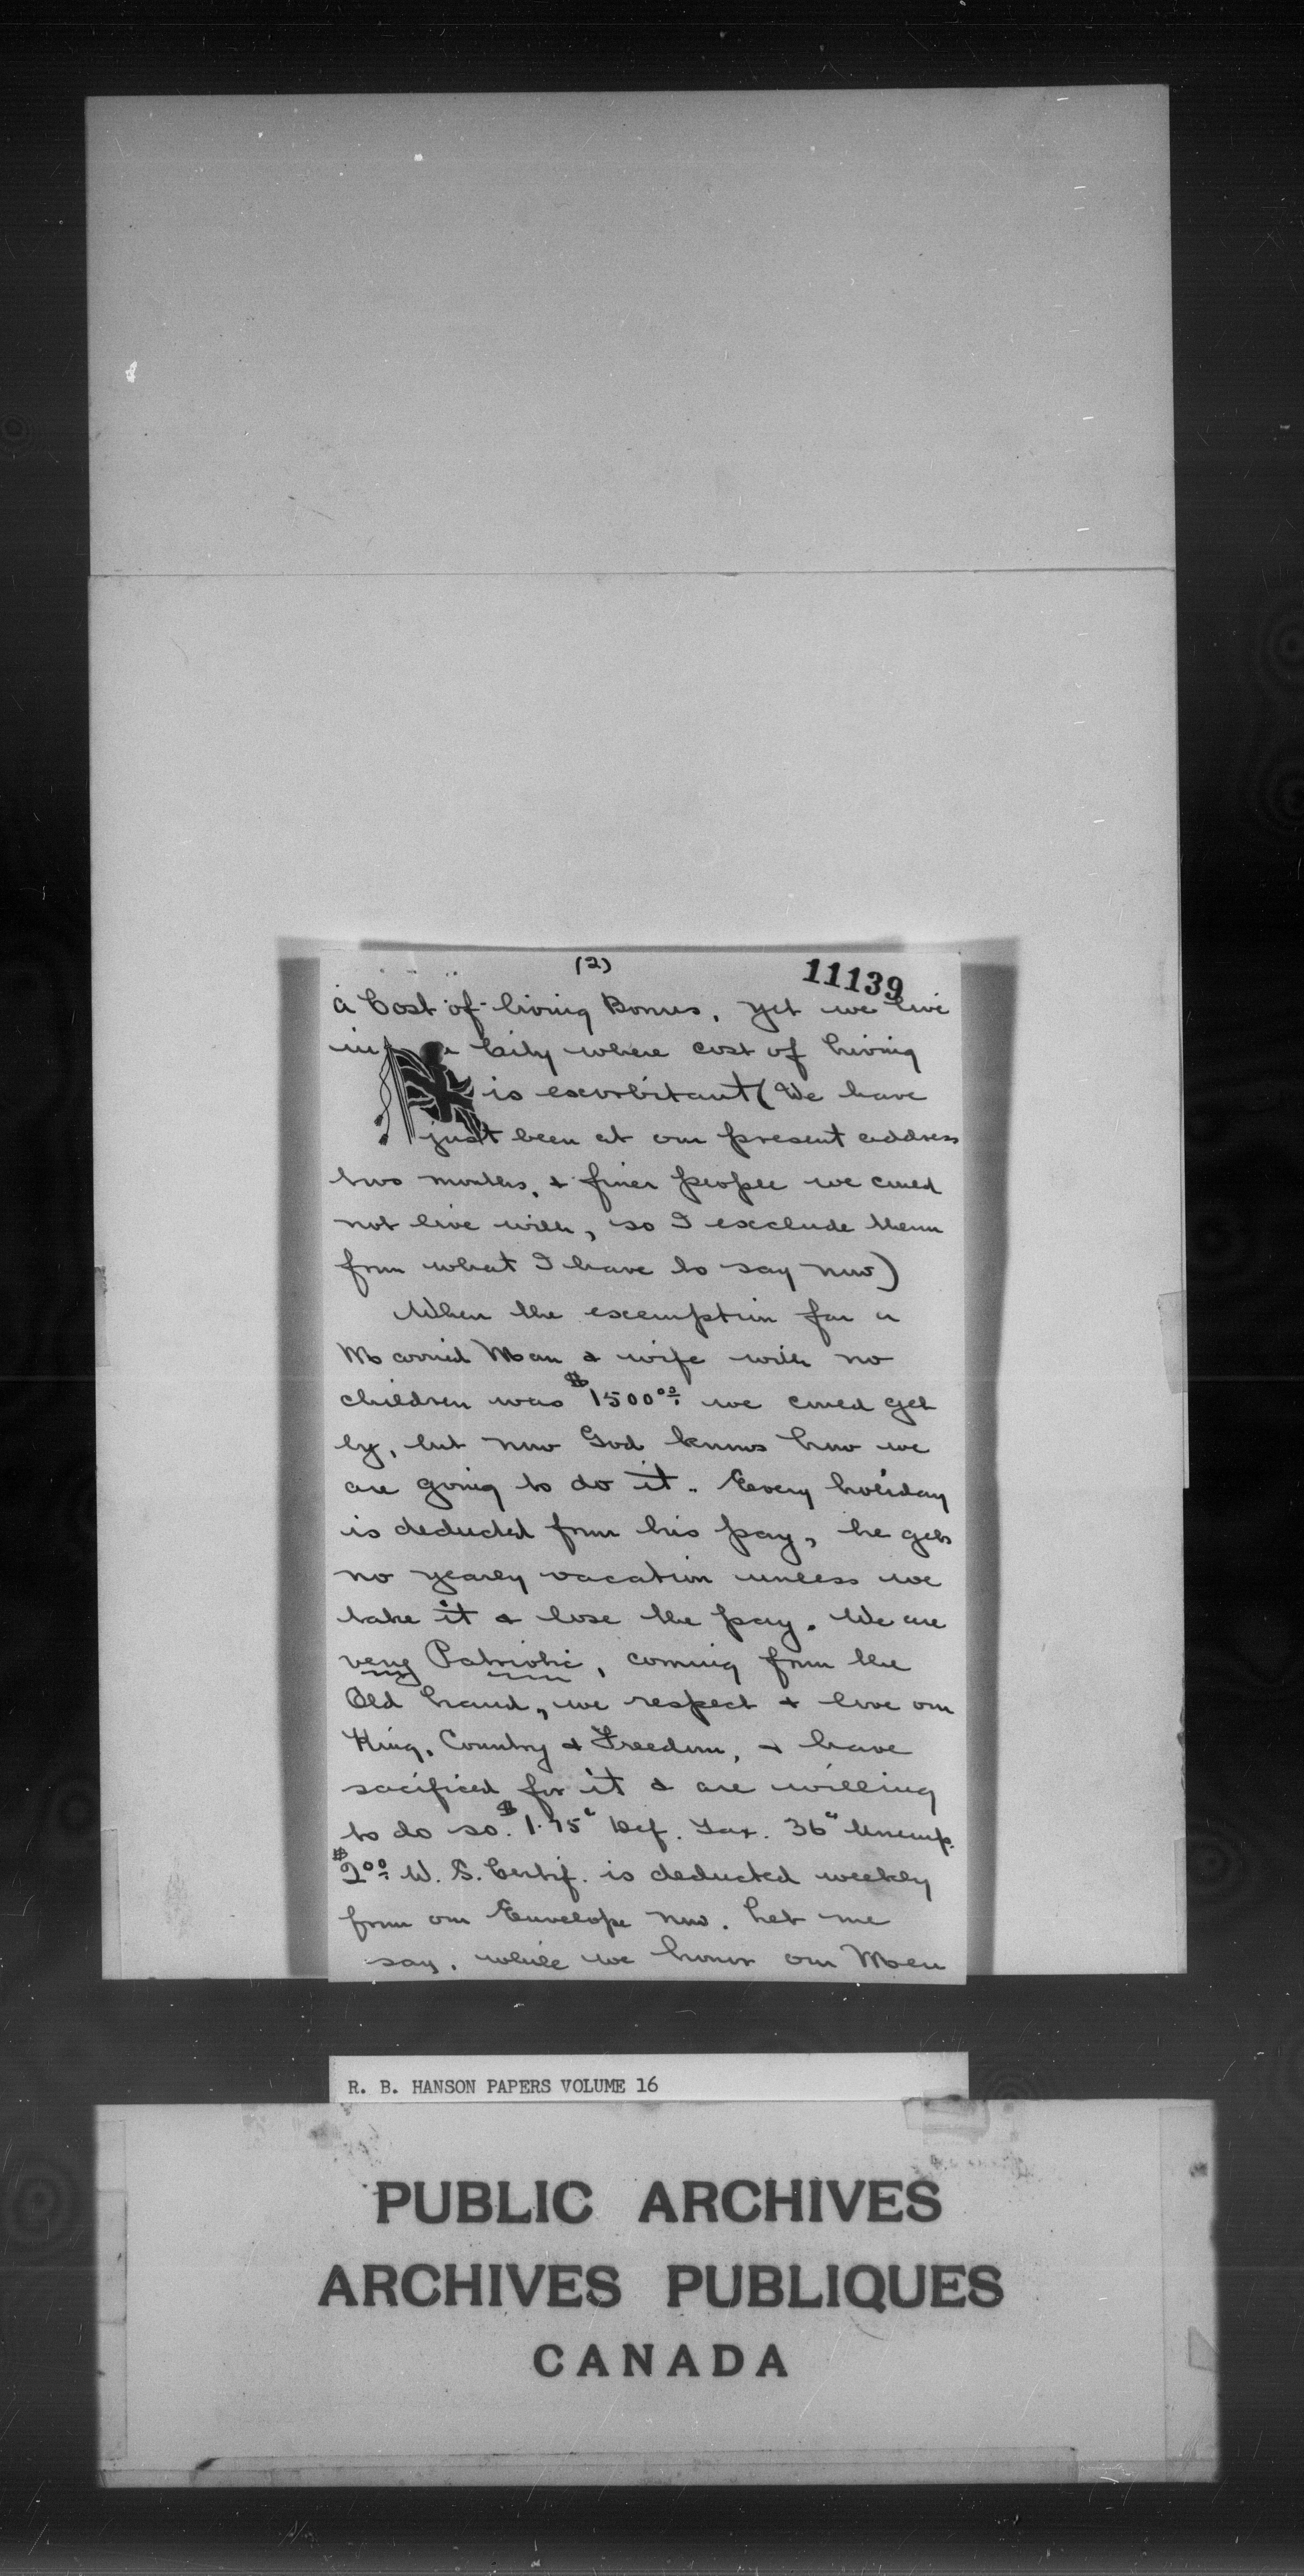 (2)
11139
a Cost of living Bonus, yet we live
in a City where cost of living
is exorbitant (We have
just been at our present address
two months, & finer people we could
not live with, so I exclude them
from what I have to say now)
When the exemption for a
Married Man & wife with no
children was $1500.00 we could get
by, but now God knows how we
are going to do it. Every holiday
is deducted from his pay, he gets
no yearly vacation unless we
take it & lose the pay. We are
very Patriotic, coming from the
Old Land, we respect & love our
King, Country & Freedom, & have
sacificed for it & are willing
to do so. $1.75c Def. Tax. 36c Unemp.
$2.00 W. S. Certif. is deducted weekly
from our Envelope now. Let me
say, while we honor our Men
R. B. HANSON PAPERS VOLUME 16
PUBLIC ARCHIVES
ARCHIVES PUBLIQUES
CANADA